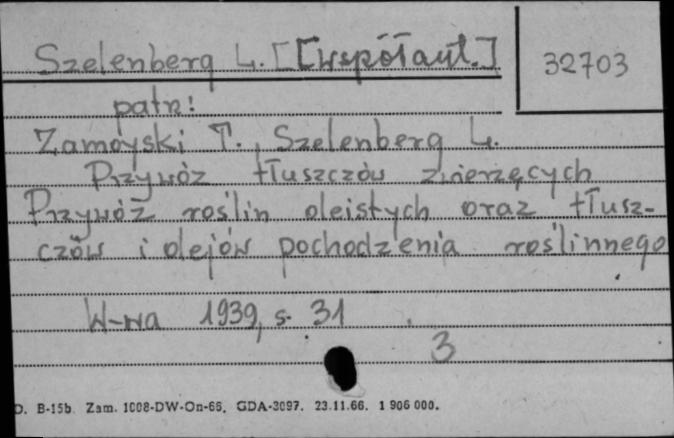 Szelenberg L. [[współaut.]
32703
patrz:
Zamoyski T., Szelenberg L.
Przywóz tłuszczów zwierzęcych
Przywóz roślin oleistych oraz tłusz-
czów i olejów pochodzenia roślinnego
W-wa 1939, s. 31
3
D. B-15b. Zam. 1008-DW-On-66. GDA-3097. 23.11.66. 1 906 000.